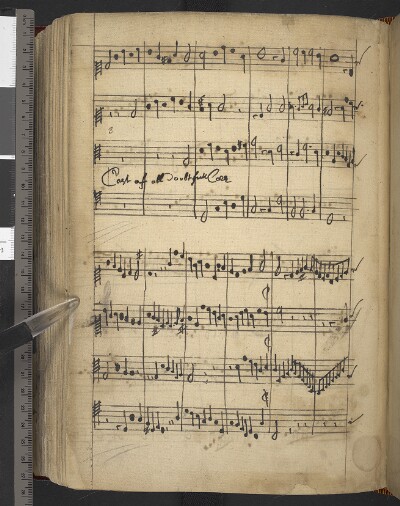 Cast of all doubtfull Care